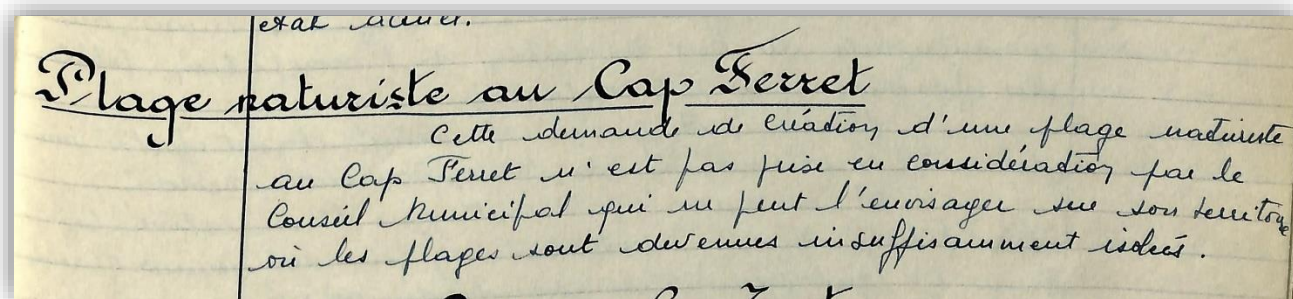 état actuel.
Plage naturiste au Cap Ferret
Cette demande de création d'une plage naturiste
au Cap Ferret n'est pas prise en considération par le
Conseil Municipal qui ne peut l'envisager sur son territoire
où les plages sont devenues insuffisamment isolées.